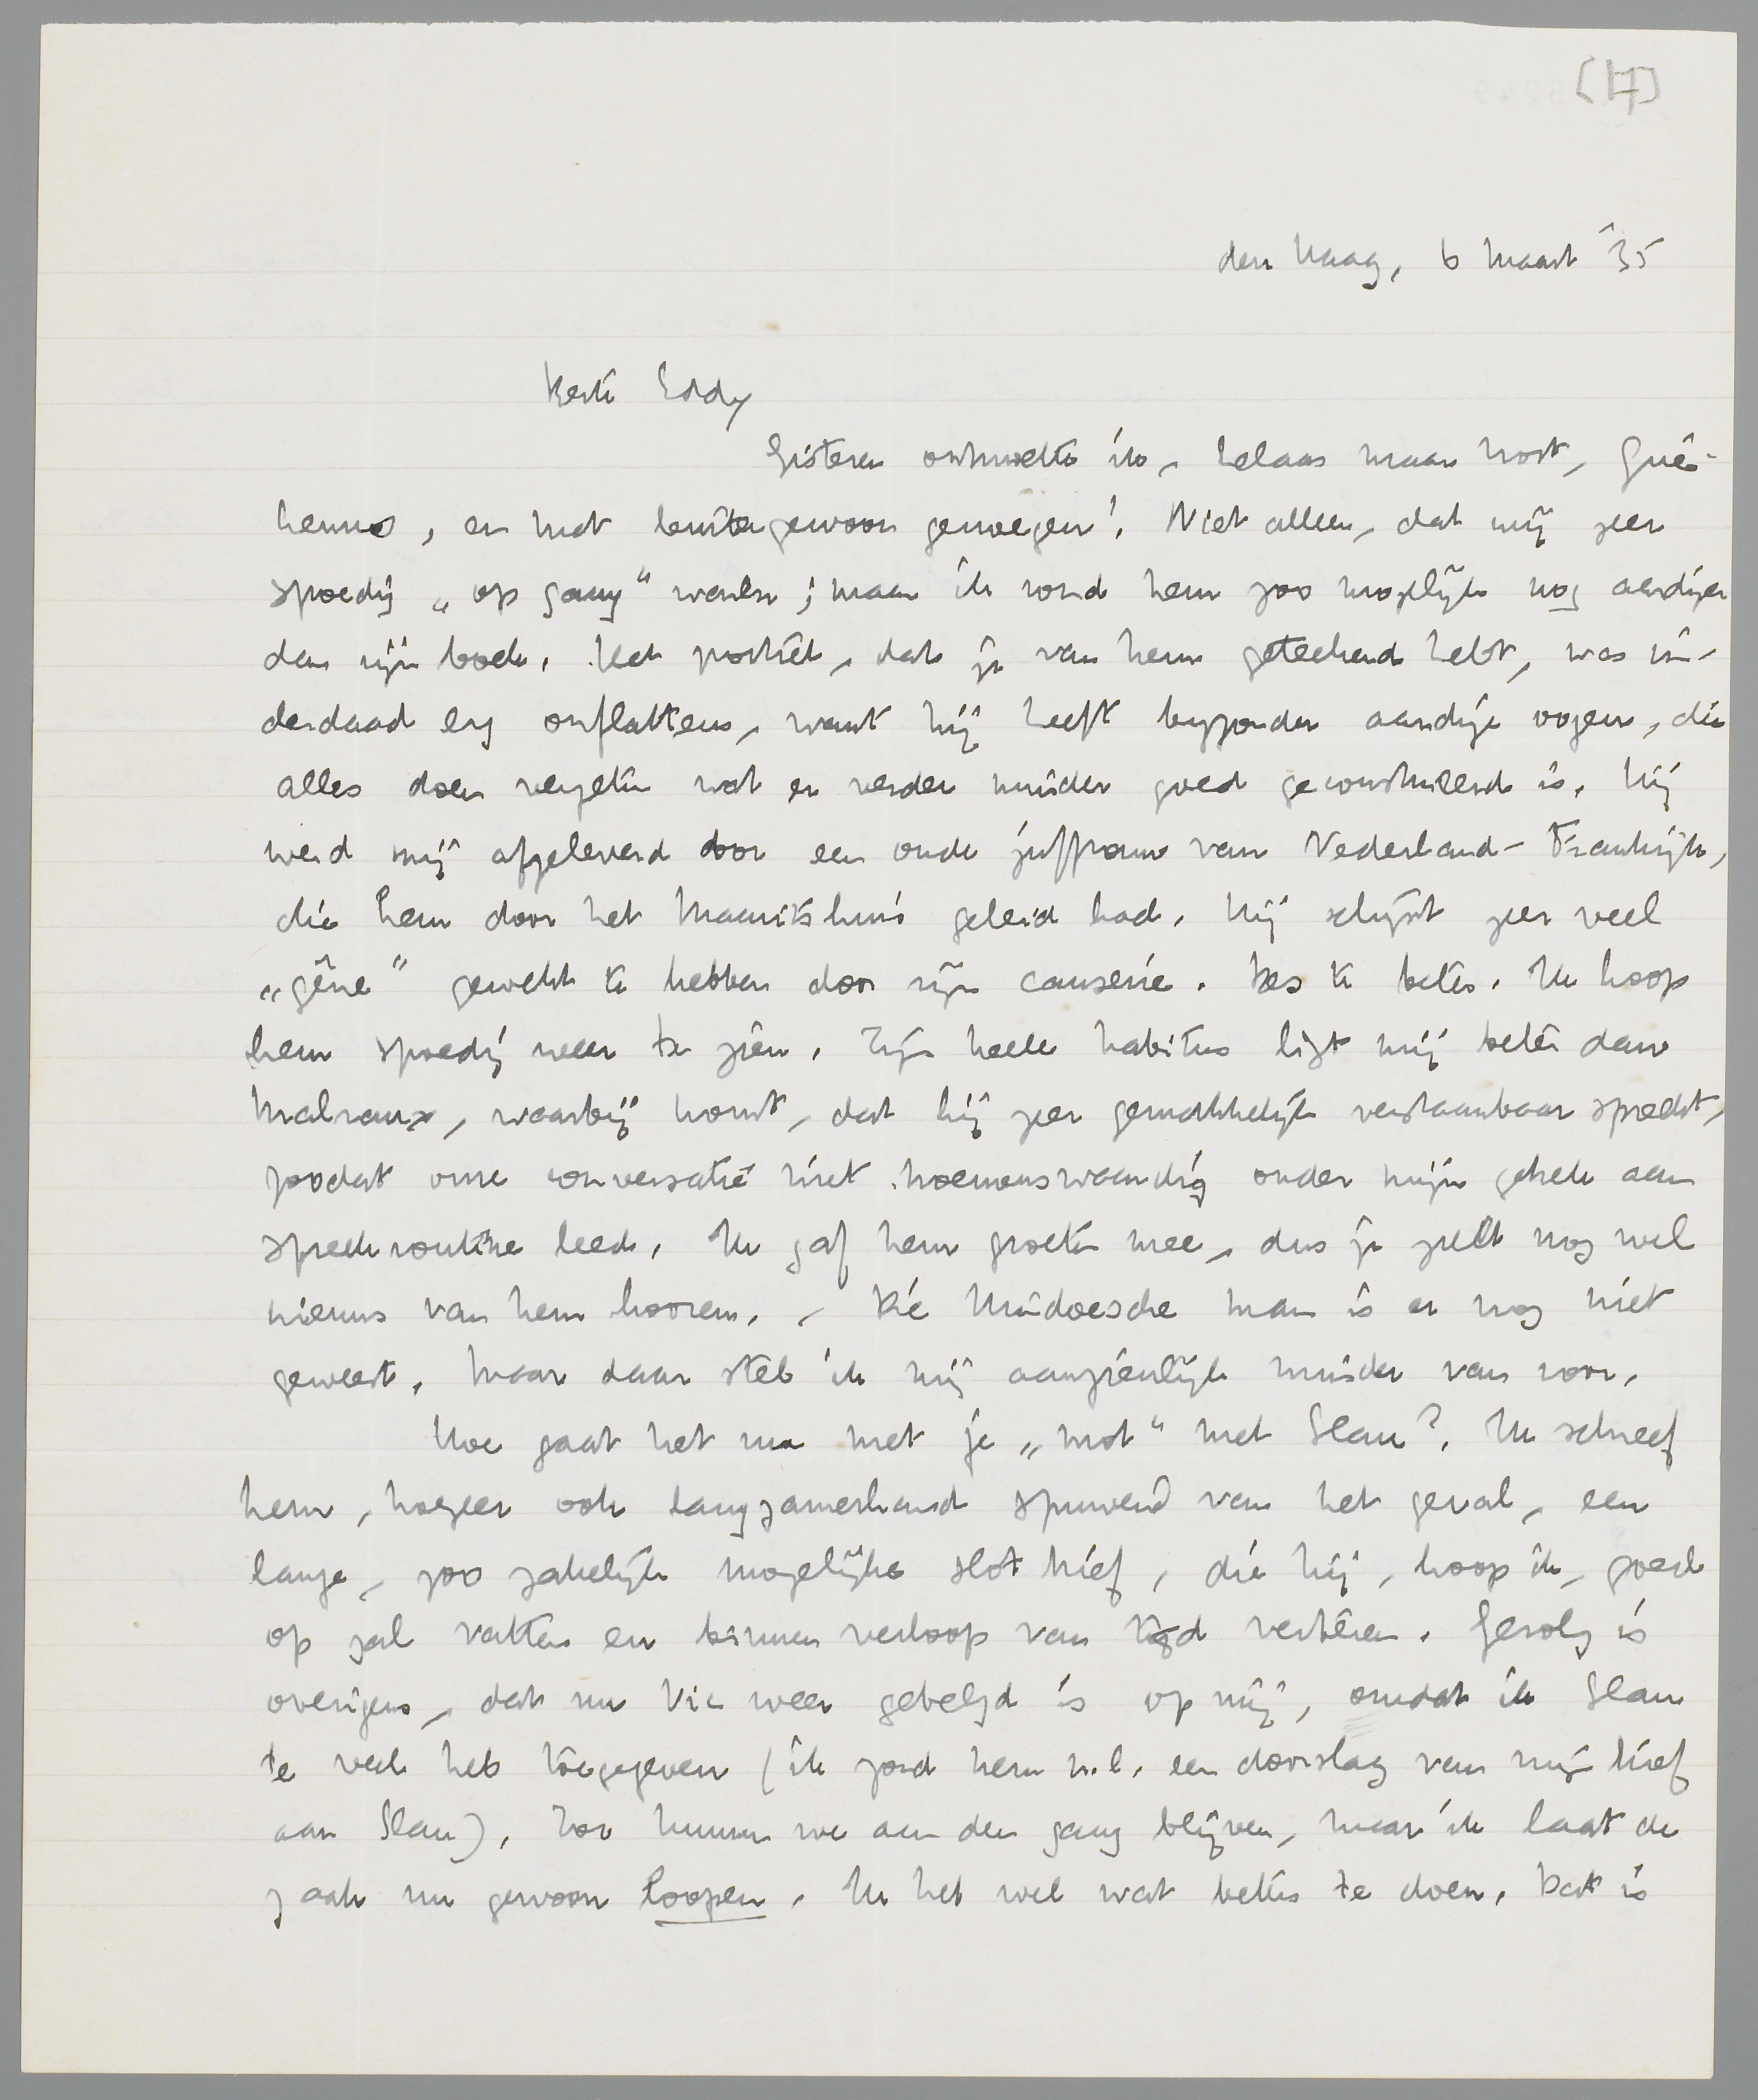 (17)
den Haag, 6 Maart '35
Beste Eddy
Gisteren ontmoette ik, helaas maar kort, Gué-
henno, en met buitengewoon genoegen! Niet alleen, dat wij zeer
spoedig „op gang" waren; maar ik vond hem zoo mogelijk nog aardiger
dan zijn boek. Het portret, dat je van hem geteekend hebt, was in-
derdaad erg onflatteus, want hij heeft byzonder aardige oogen, die
alles doen vergeten wat er verder minder goed geconstrueerd is. Hij
werd mij afgeleverd door een oude juffrouw van Nederland-Frankrijk,
die hem door het Mauritshuis geleid had. Hij schijnt zeer veel
„gêne" gewekt te hebben door zijn causerie. Des te beter. Ik hoop
hem spoedig weer te zien. Zijn heele habitus ligt mij beter dan
Malraux, waarbij komt, dat hij zeer gemakkelijk verstaanbaar spreekt,
zoodat onze conversatie niet noemenswaardig onder mijn gebrek aan
spreekroutine leed. Ik gaf hem groeten mee, dus je zult nog wel
nieuws van hem hooren. - Die Hindoesche man is er nog niet
geweest. Maar daar stel ik mij aanzienlijk minder van voor.
Hoe gaat het nu met je „mot" met Slau?. Ik schreef
hem, hogeer ook langzamerhand spuwend van het geval, een
lange, zoo zakelijk mogelijke slotbrief, die hij, hoop ik, goed
op zal vatten en binnen verloop van tijd verteren. Gevolg is
overigens, dat nu Vic weer gebelgd is op mij, omdat ik Slau
te veel heb toegegeven (ik zond hem n.l. een doorslag van mijn brief
aan Slau). Zoo kunnen we aan den gang blijven, maar ik laat de
zaak nu gewoon loopen. Ik heb wel wat beters te doen. Dat is